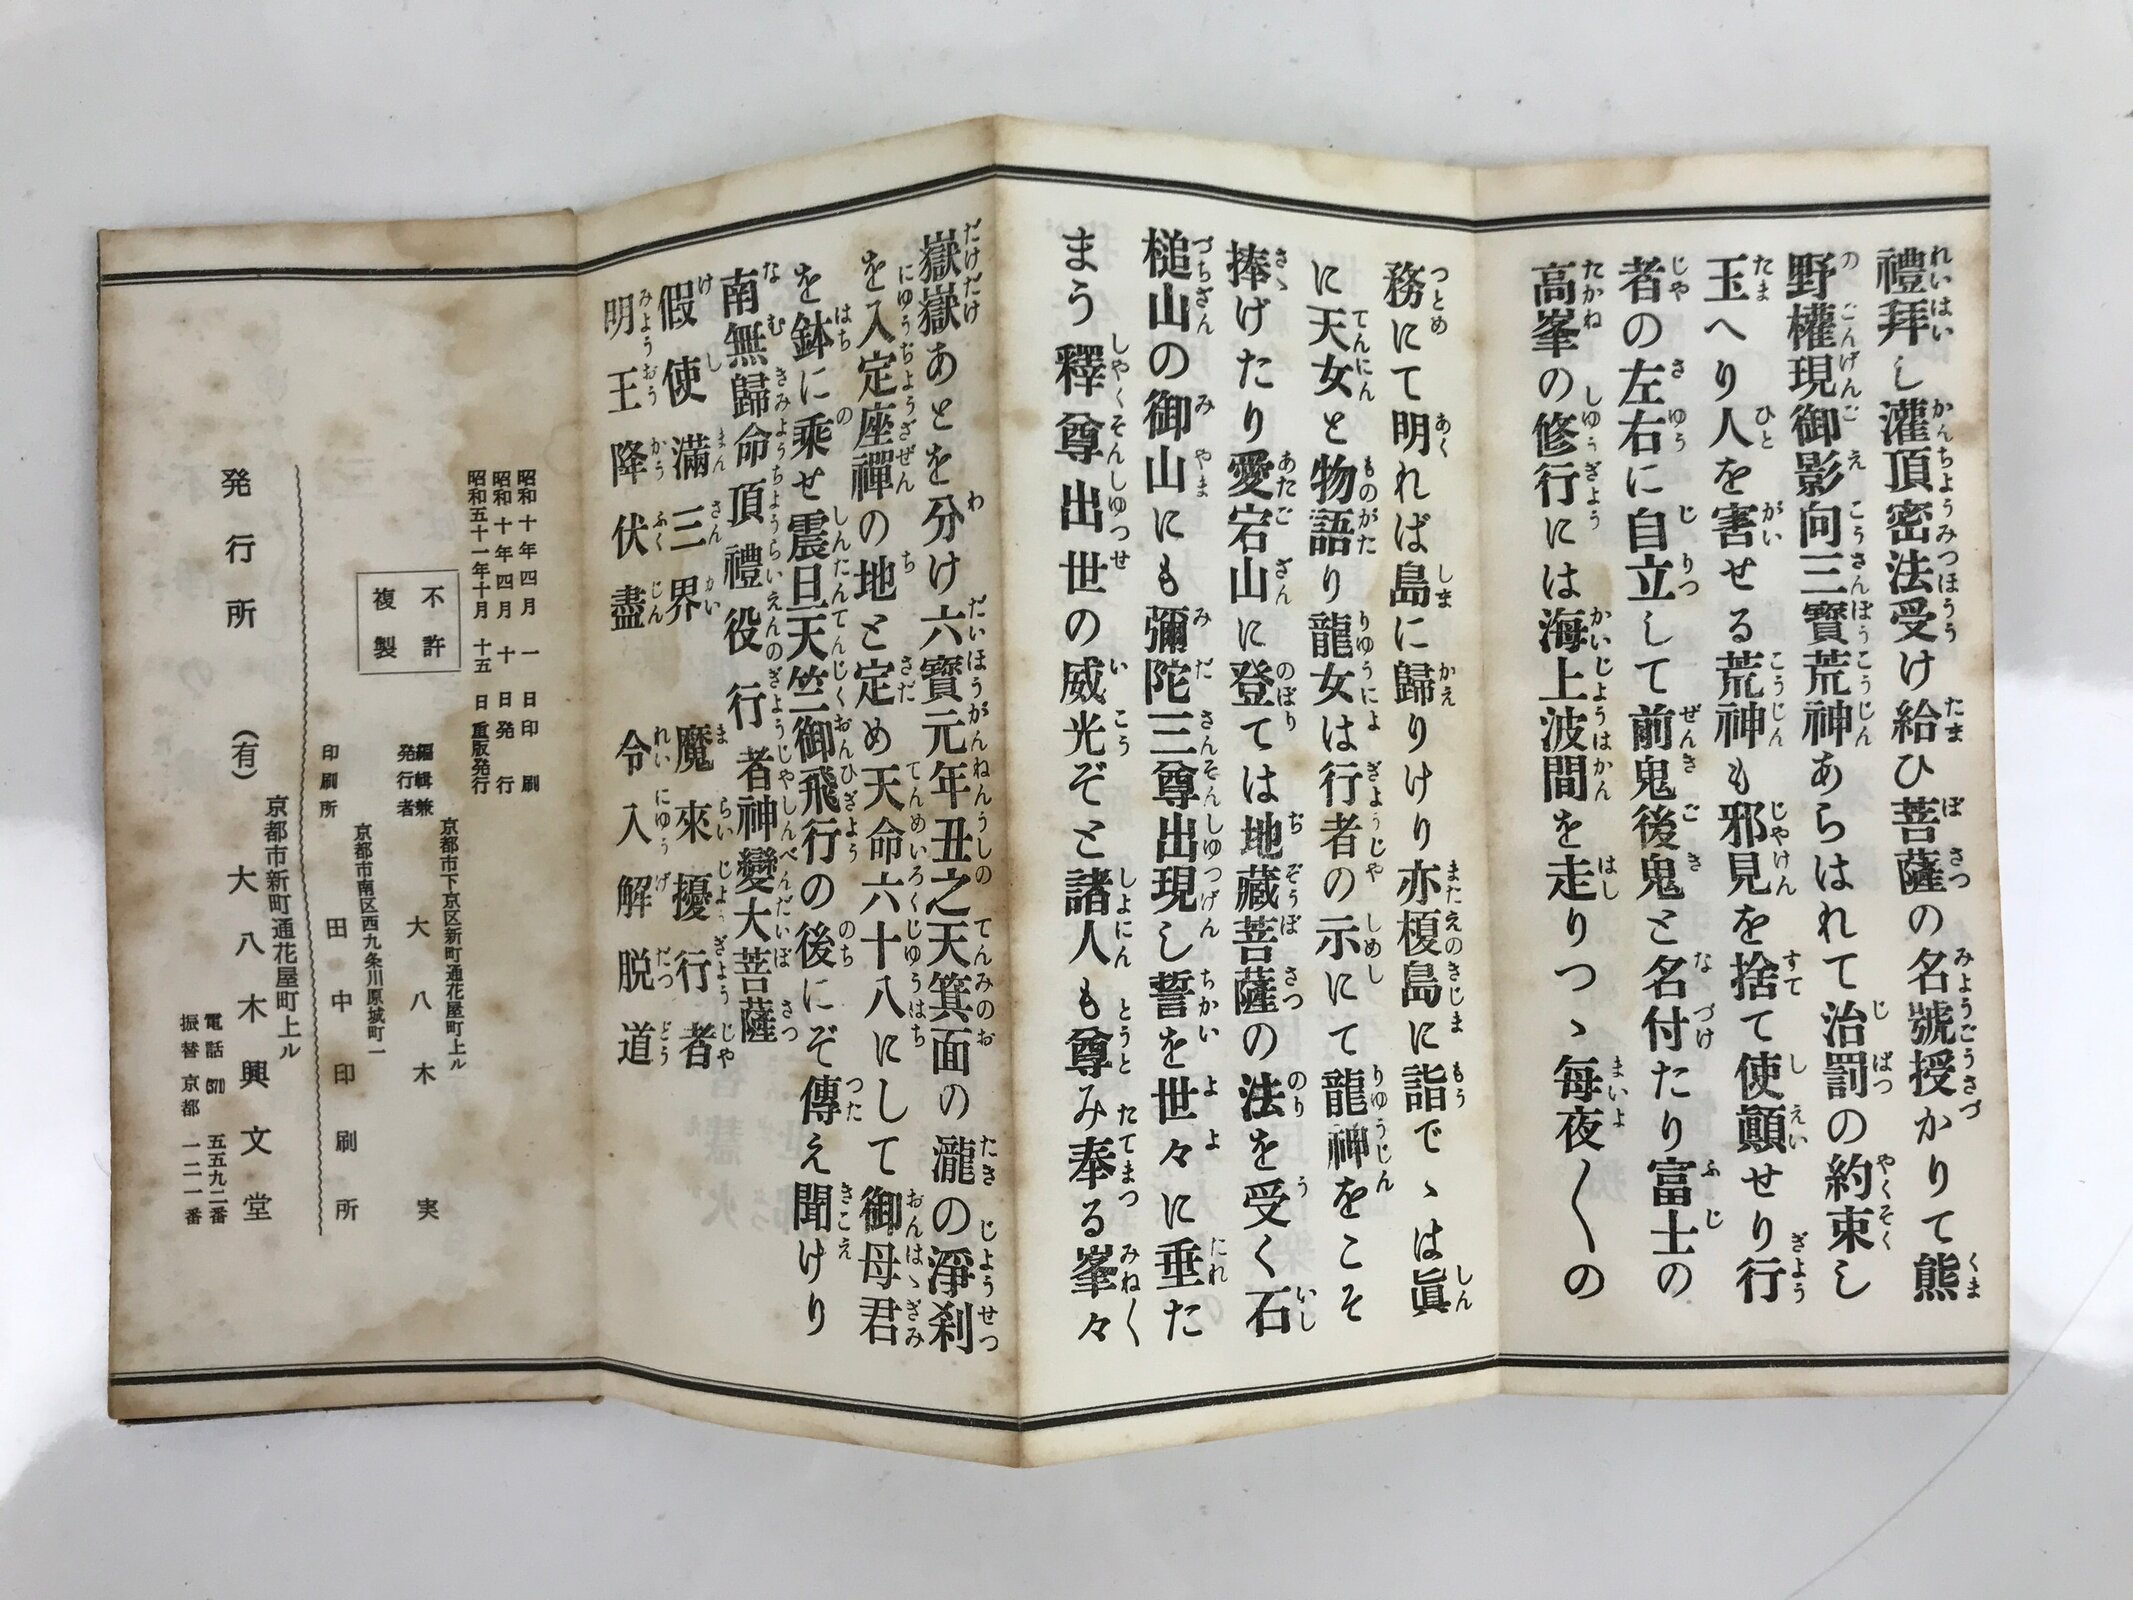 禮拜し灌頂密法受け給ひ菩薩の名號授かりて熊
野權現御影向三寳荒神あらはれて治罰の約束し
玉へり人を害せる荒神も邪見を捨て使顚せり行
者の左右に自立して前鬼後鬼と名付たり富士の
高峯の修行には海上波間を走りつゝ毎夜〱の
務にて明れば島に歸りけり亦榎島に詣でゝは眞
に天女と物語り龍女は行者の示にて龍神をこそ
捧げたり愛宕山に登ては地藏菩薩の法を受く石
槌山の御山にも彌陀三尊出現し誓を世々に垂た
まう釋尊出世の威光ぞと諸人も尊み奉る峯々
嶽嶽あとを分け六寳元年丑之天箕面の瀧の淨刹
を入定座禪の地と定め天命六十八にして御母君
を鉢に乘せ震旦天竺御飛行の後にぞ傳え聞けり
南無歸命頂禮役行者神變大菩薩
假使滿三界 魔來擾行者
明王降伏盡 令入解脱道
昭和十年四月一日印刷
昭和十年四月十日発行
昭和五十一年十月十五日重版発行
不許
複製
京都市下京区新町通花屋町上ル
編輯兼
発行者 大八木実
京都市南区西九条川原城町一
印刷所 田中印刷所
京都市新町通花屋町上ル
発行所 (有)大八木興文堂
電話 五五九二番
振替京都 一二一番